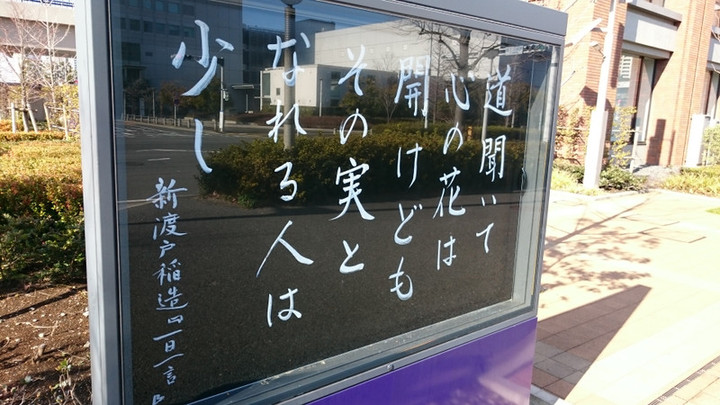 道聞いて
心の花は
開けども
その実と
なれる人は
少し
新渡戸稲造 一日一言